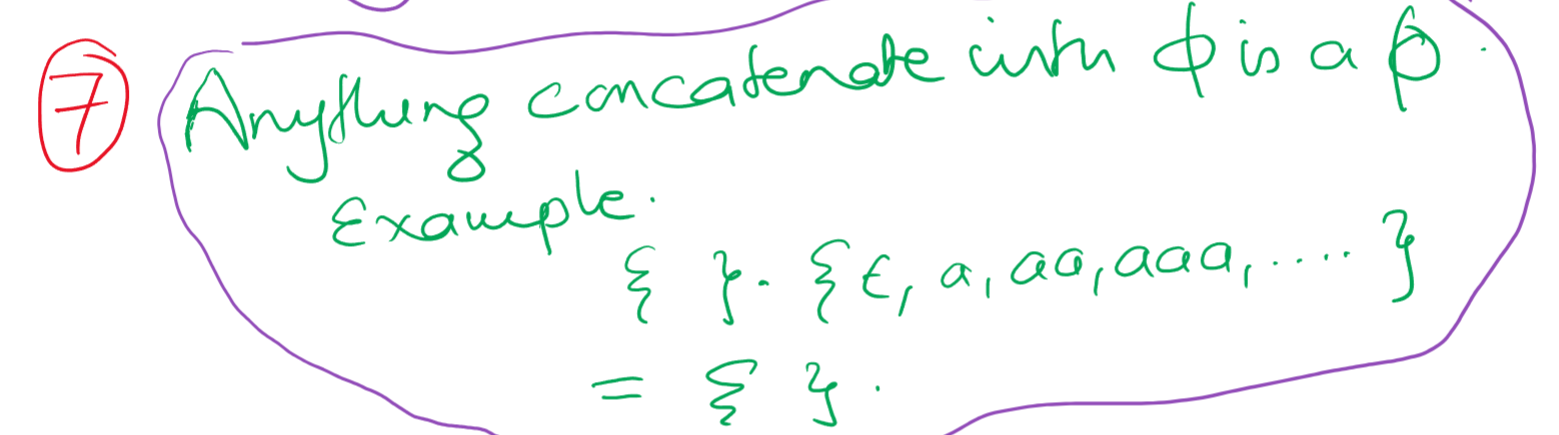 7 Anything concatenate with ϕ is a ϕ.
Example.
{ }. {ε, a, aa, aaa, .... }
= { }.